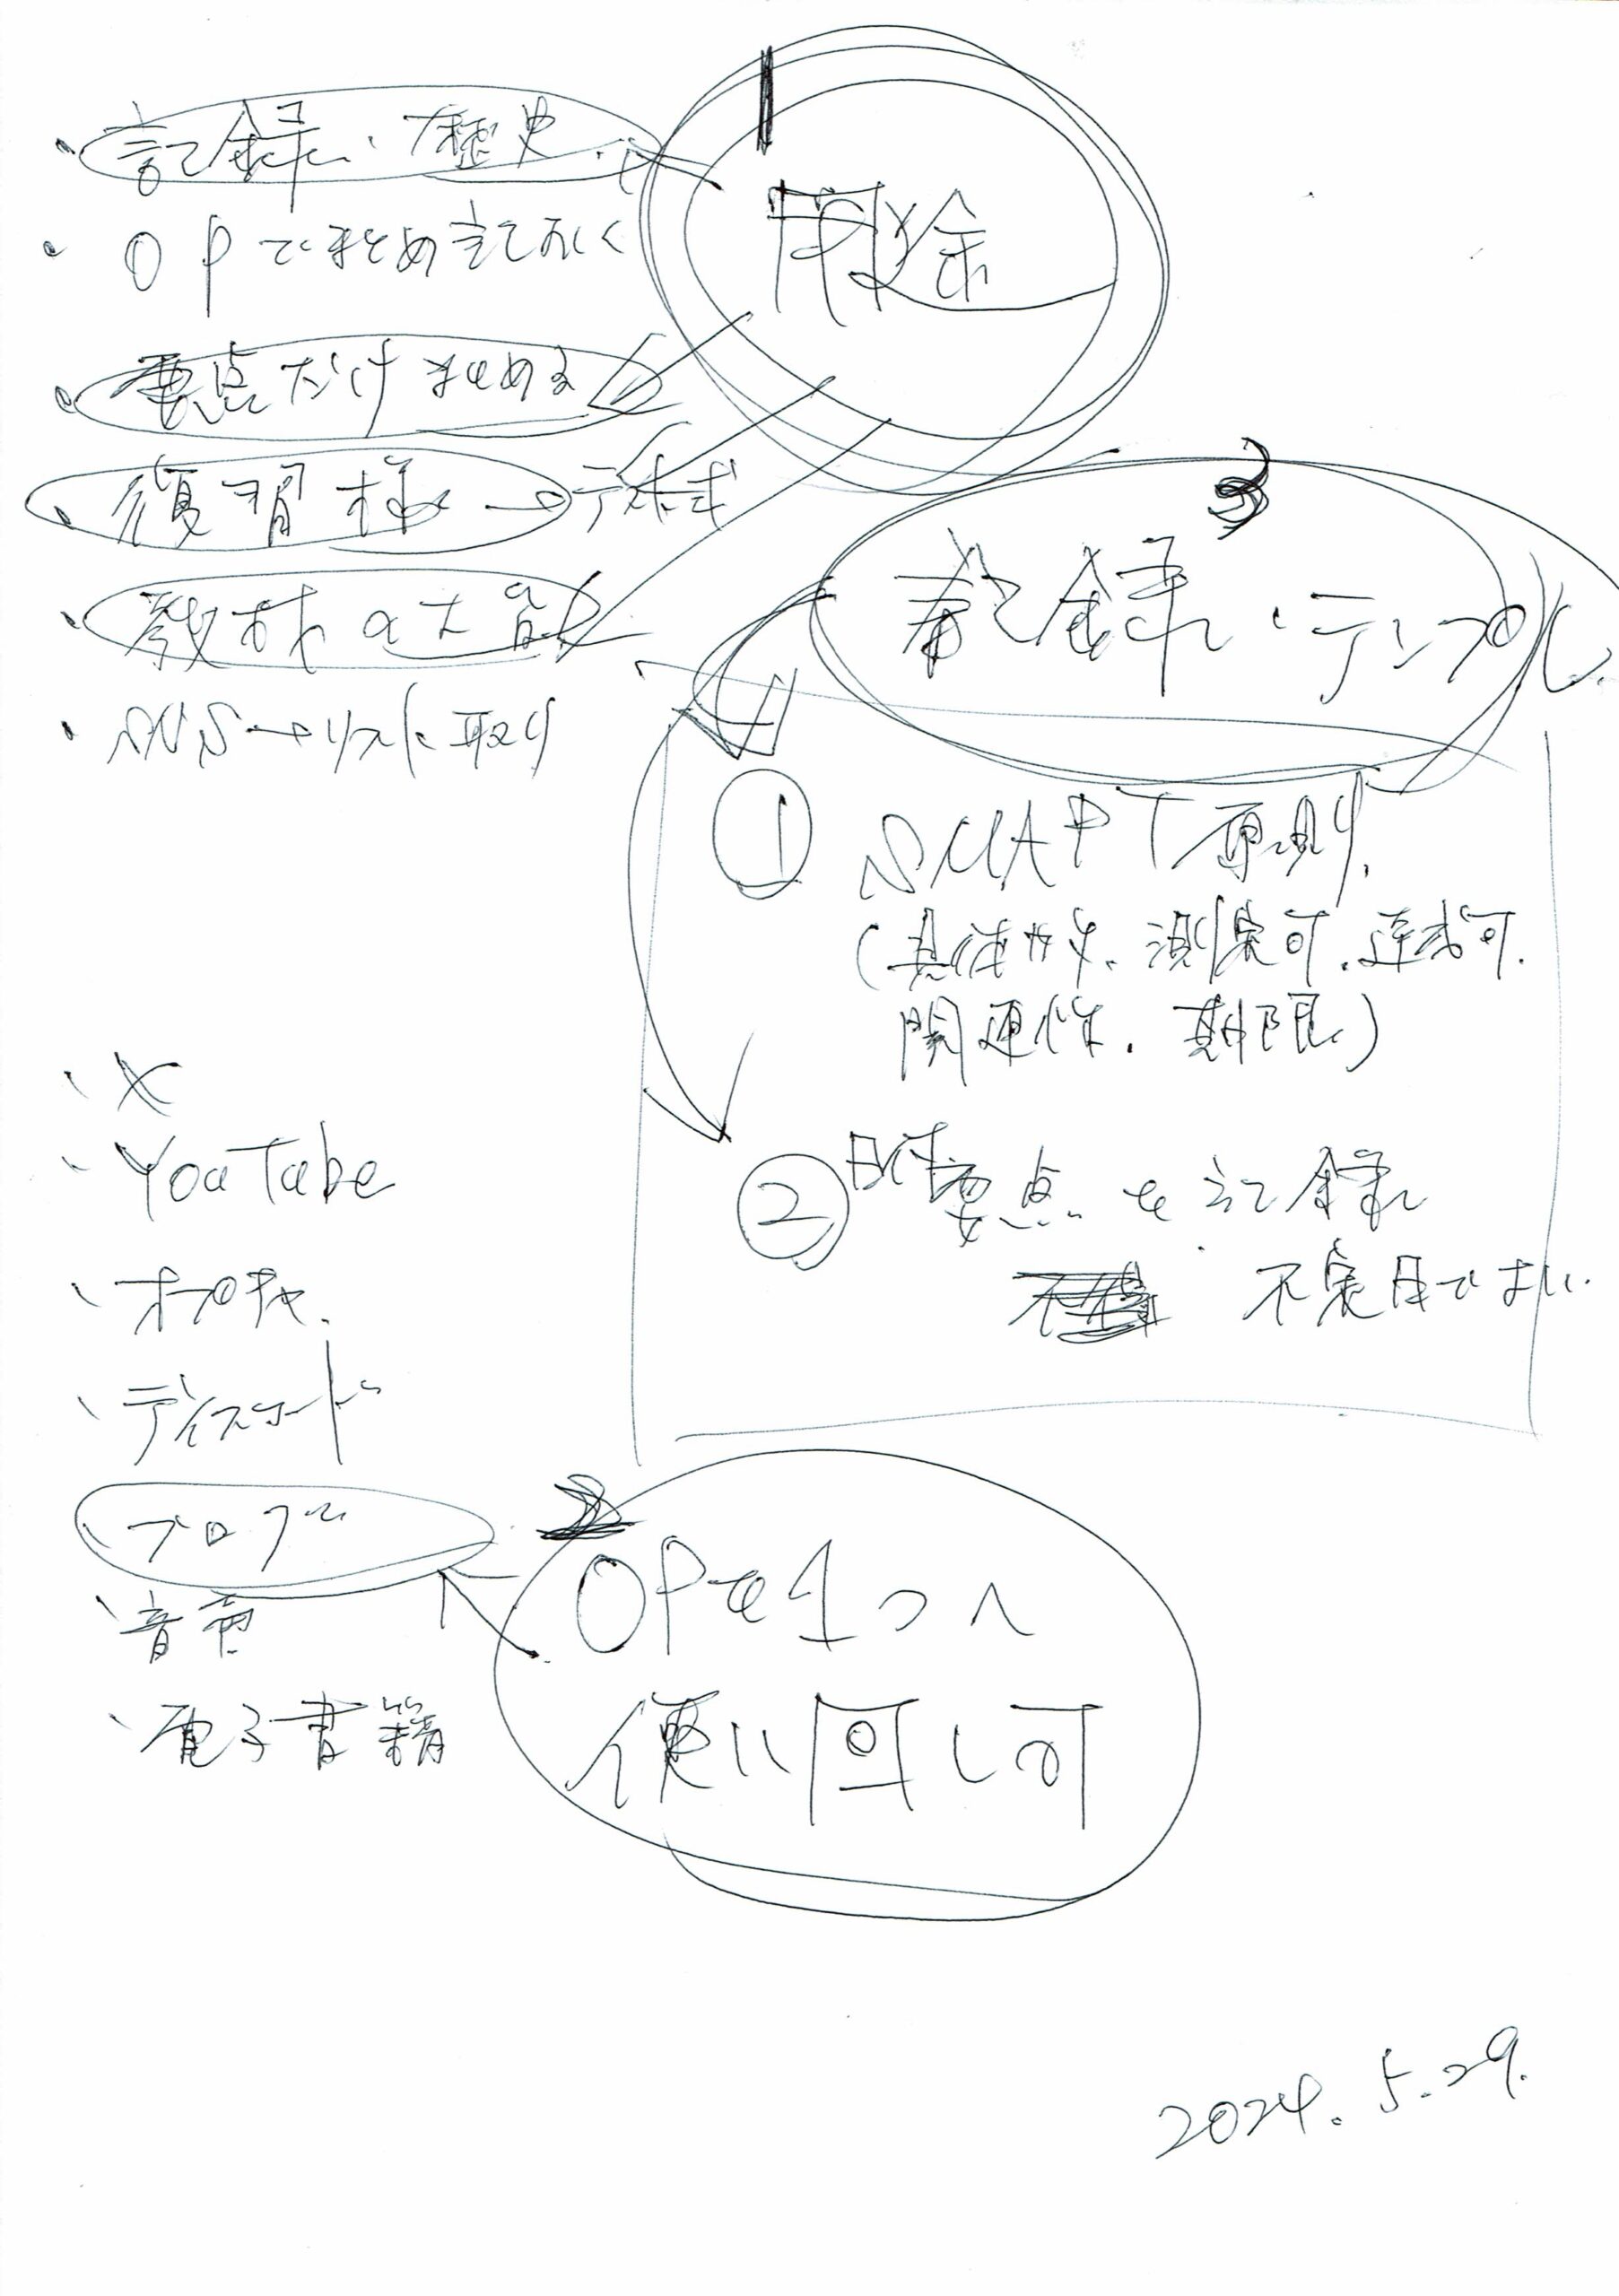 1
・記録、歴史
・OPでまとめ記おく
・要点だけまとめる
・復習 → テスト式
・教材の土台
・SNS→リスト取り
3
記録・テンプレ
① SMART原則
(具体性、測定可、達成可、
関連性、期限)
② 日付 要点を記録
不定期でよい
・X
・YouTube
・オプチャ
・ディスコード
・ブログ
・音声
・電子書籍
2
OPを1つへ
使い回し可
2024.5.29.